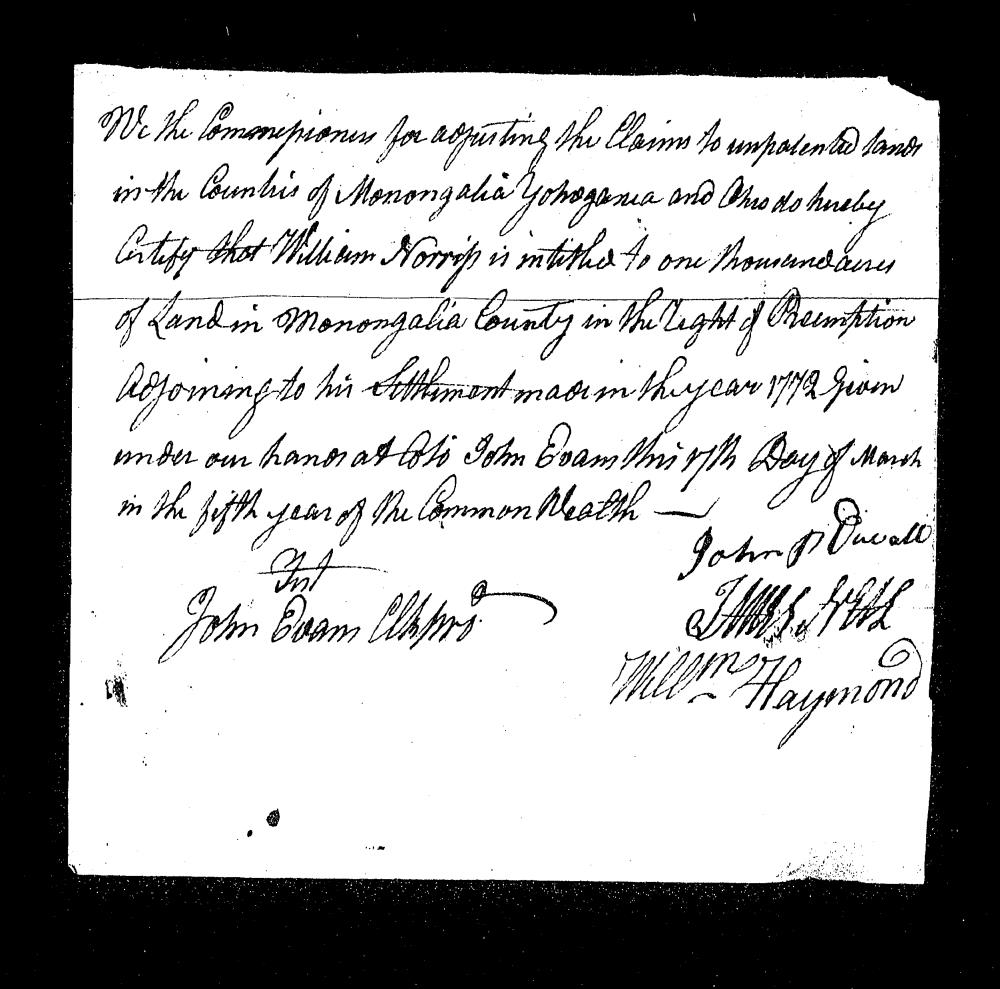 We the Commissioners for adjusting the Claims to unpatented lands
in the Counties of Monongalia Yohogania and Ohio do hereby
Certify that William Norriss is intitled to one thousand acres
of Land in Monongalia County in the Right of Preemption
Adjoining to his Settlement made in the year 1772 Given
under our hands at Colo John Evans this 17th Day of March
in the fifth year of the Common Wealth —
John P Duvall
Test
James Neal
John Evans Clk pro
Willm Haymond